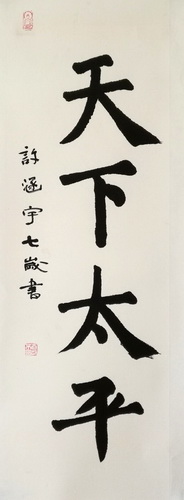 天下太平
許涵宇七歲書